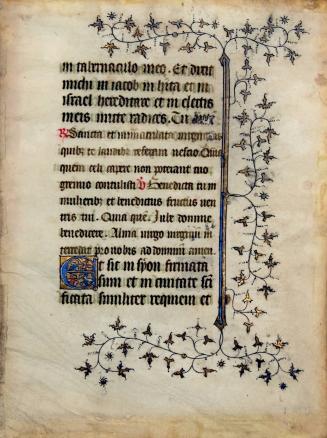 in tabernaculo meo. Et dixit
michi in iacob in hita et in
israel hereditare et in electis
meis mitte radices. Tu
R Sancta et inmaculata virginitas
quibz te laudibz referam nescio Quia
quem celi capere non poterant tuo
gremio contulisti V Benedicta tu in
mulieribz et benedictus fructus ven
tris tui. Quia quē. Iube domne
benedicere. Alma virgo virginū in
tercedat pro nobis ad dominū amen
Et sic in syon firmata
sum et in civitate sci
ficata similiter requiem et